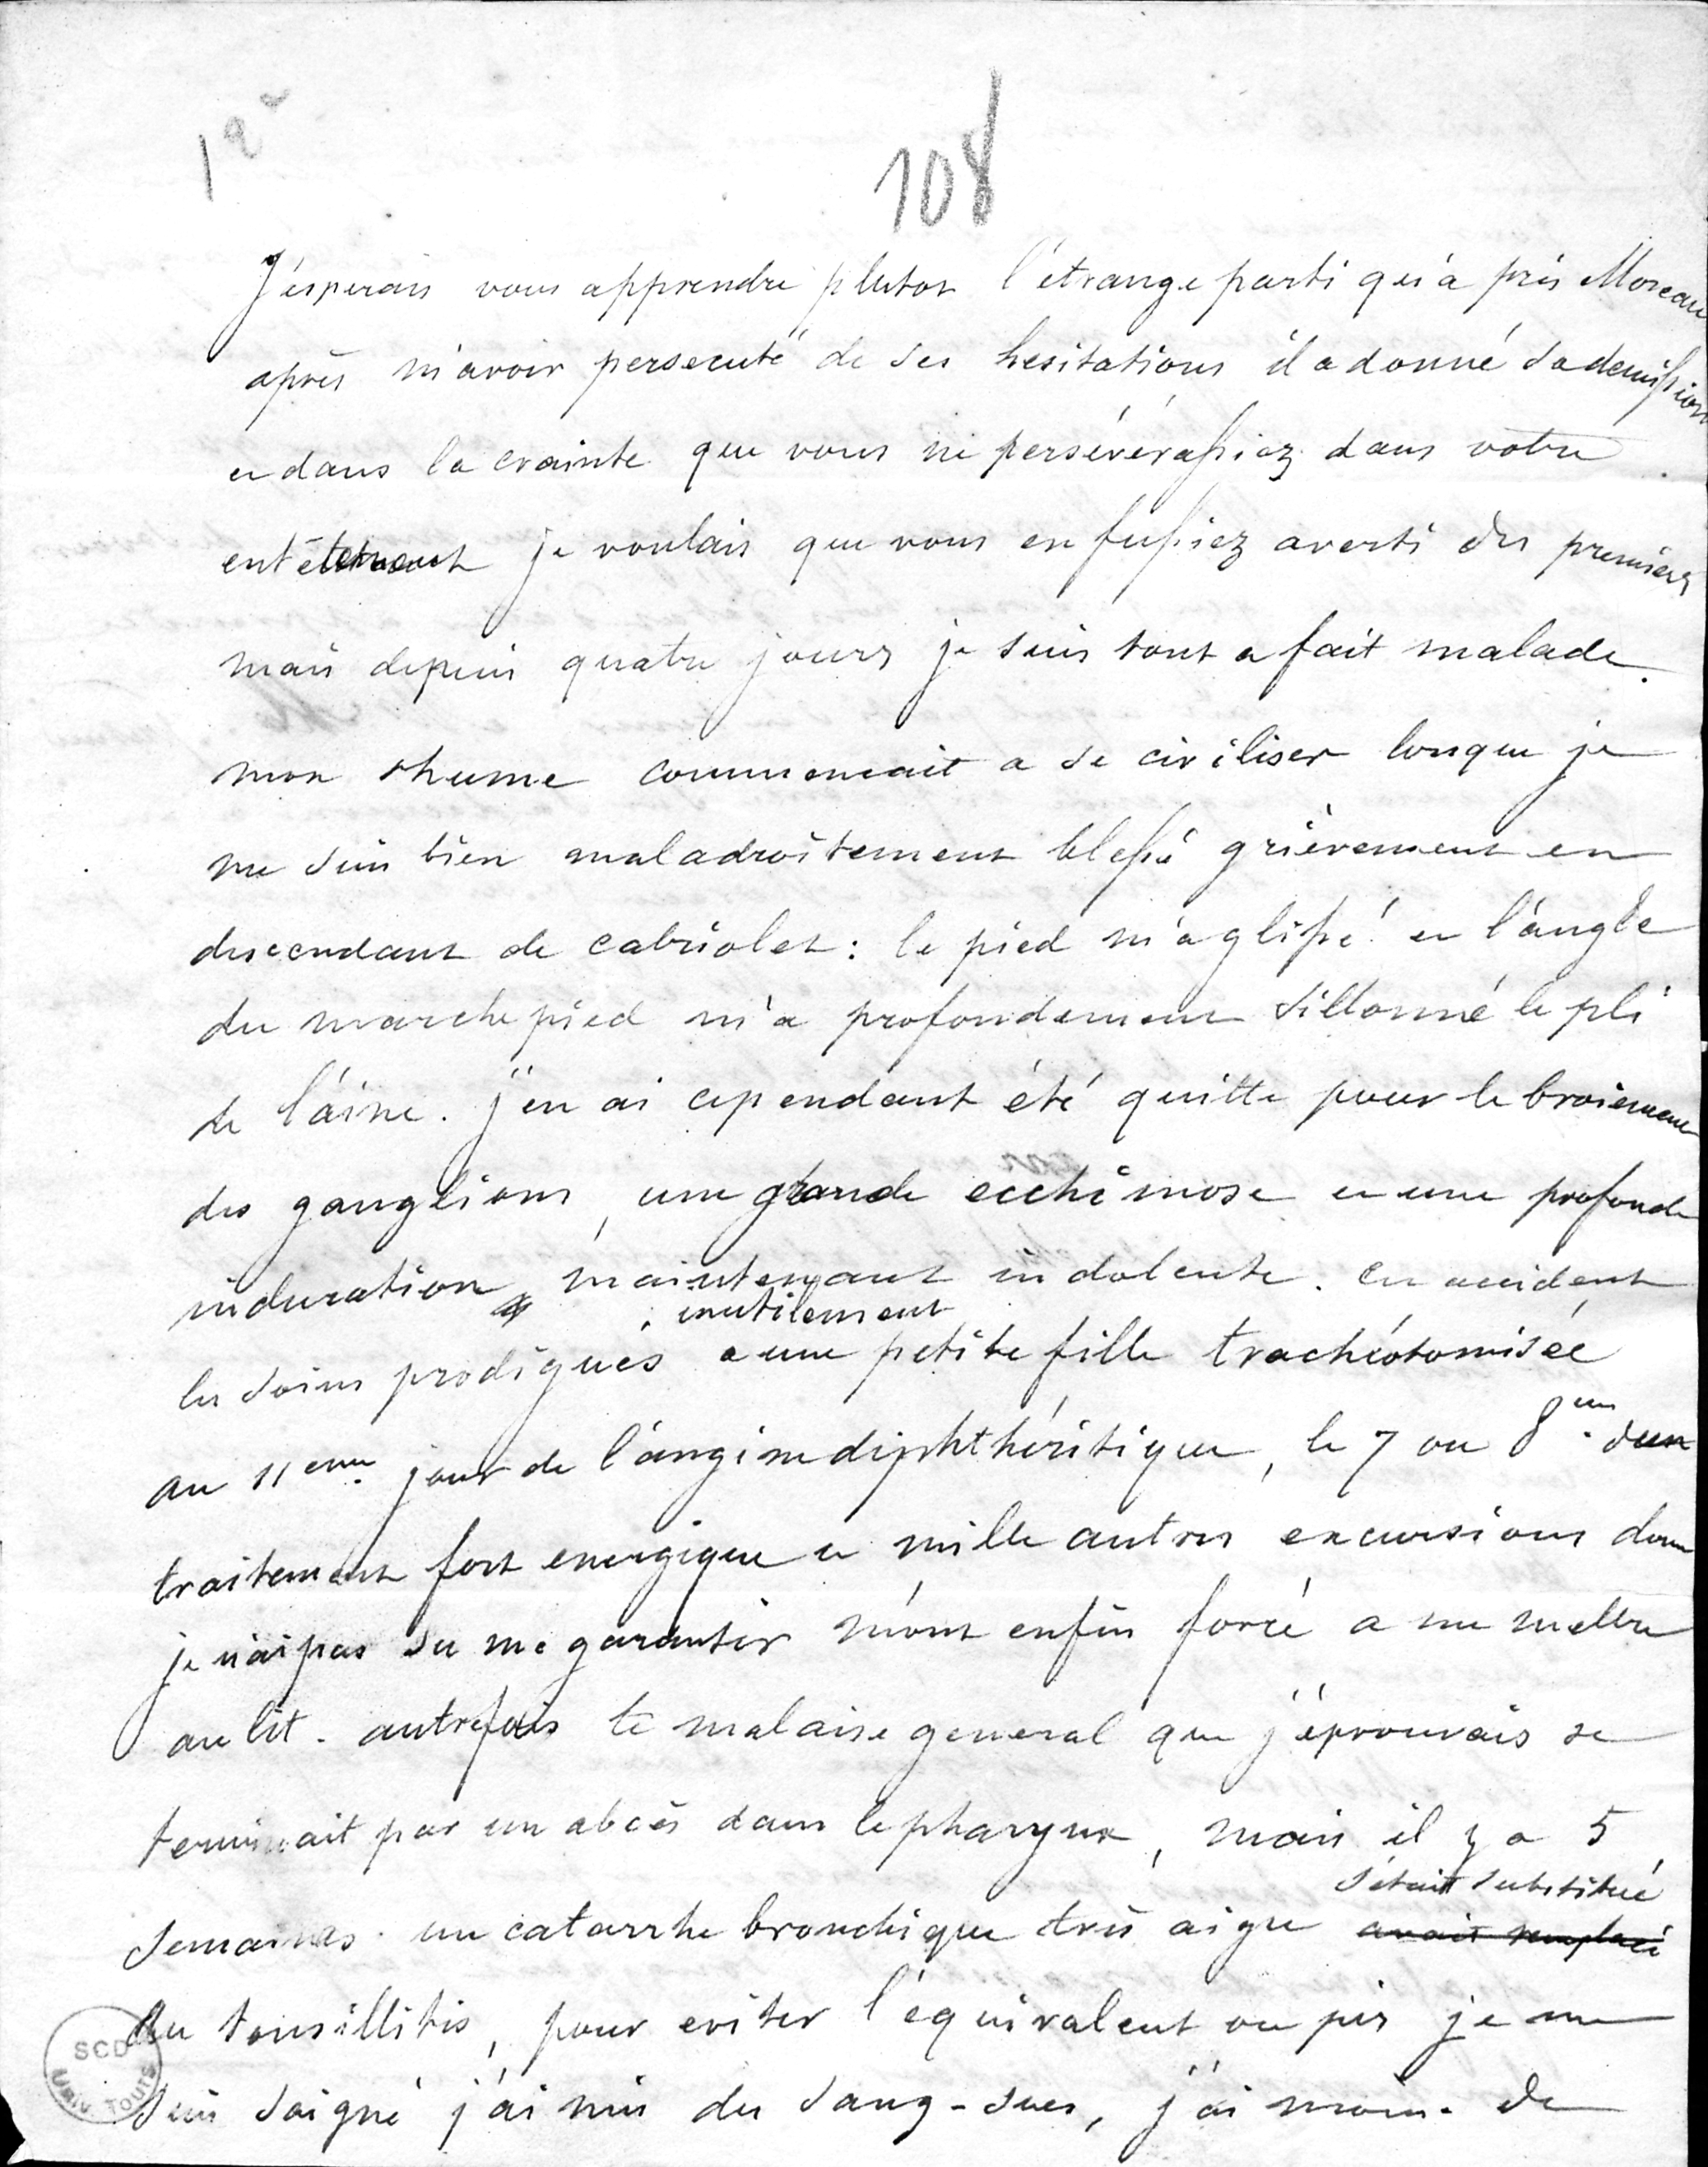 19
108
J'esperais vous apprendre plutot l'étrange parti qu'a pris Moreau
après m'avoir persecuté de ses hesitations il a donné sa demission
et dans la crainte que vous ne persévérassiez dans votre
entêtement je voulais que vous en fussiez averti des premiers
mais depuis quatre jours je suis tout a fait malade.
mon rhume commencait a se civiliser lorsque je
me suis bien maladroitement blessé grièvement en
descendant de cabriolet : le pied m'a glissé et l'angle
du marchepied m'a profondement sillonné le pli
de l'aine. j'en ai cependant été quitte pour le broiement
des ganglions, une grande ecchimose et une profonde
induration maintenant indolente. cet accident
inutilement
les soins prodigués a une petite fille trachéotomisée
au 11eme jour de l'angine diphthéritique, le 7 ou 8eme d'un
traitement fort energique et mille autres excursions dont
je n'ai pas su me garantir m'ont enfin forcé a me mettre
au lit. autrefois le malaise general que j'éprouvais se
terminait par un abcès dans le pharynx, mais il y a 5
s'était substitué
semaines un catarrhe bronchique très aigu avait remplacé
au tonsillitis, pour eviter l'équivalent ou pis je me
suis soigné j'ai mis des sang-sues, j'ai de
SCD
Univ. TOURS